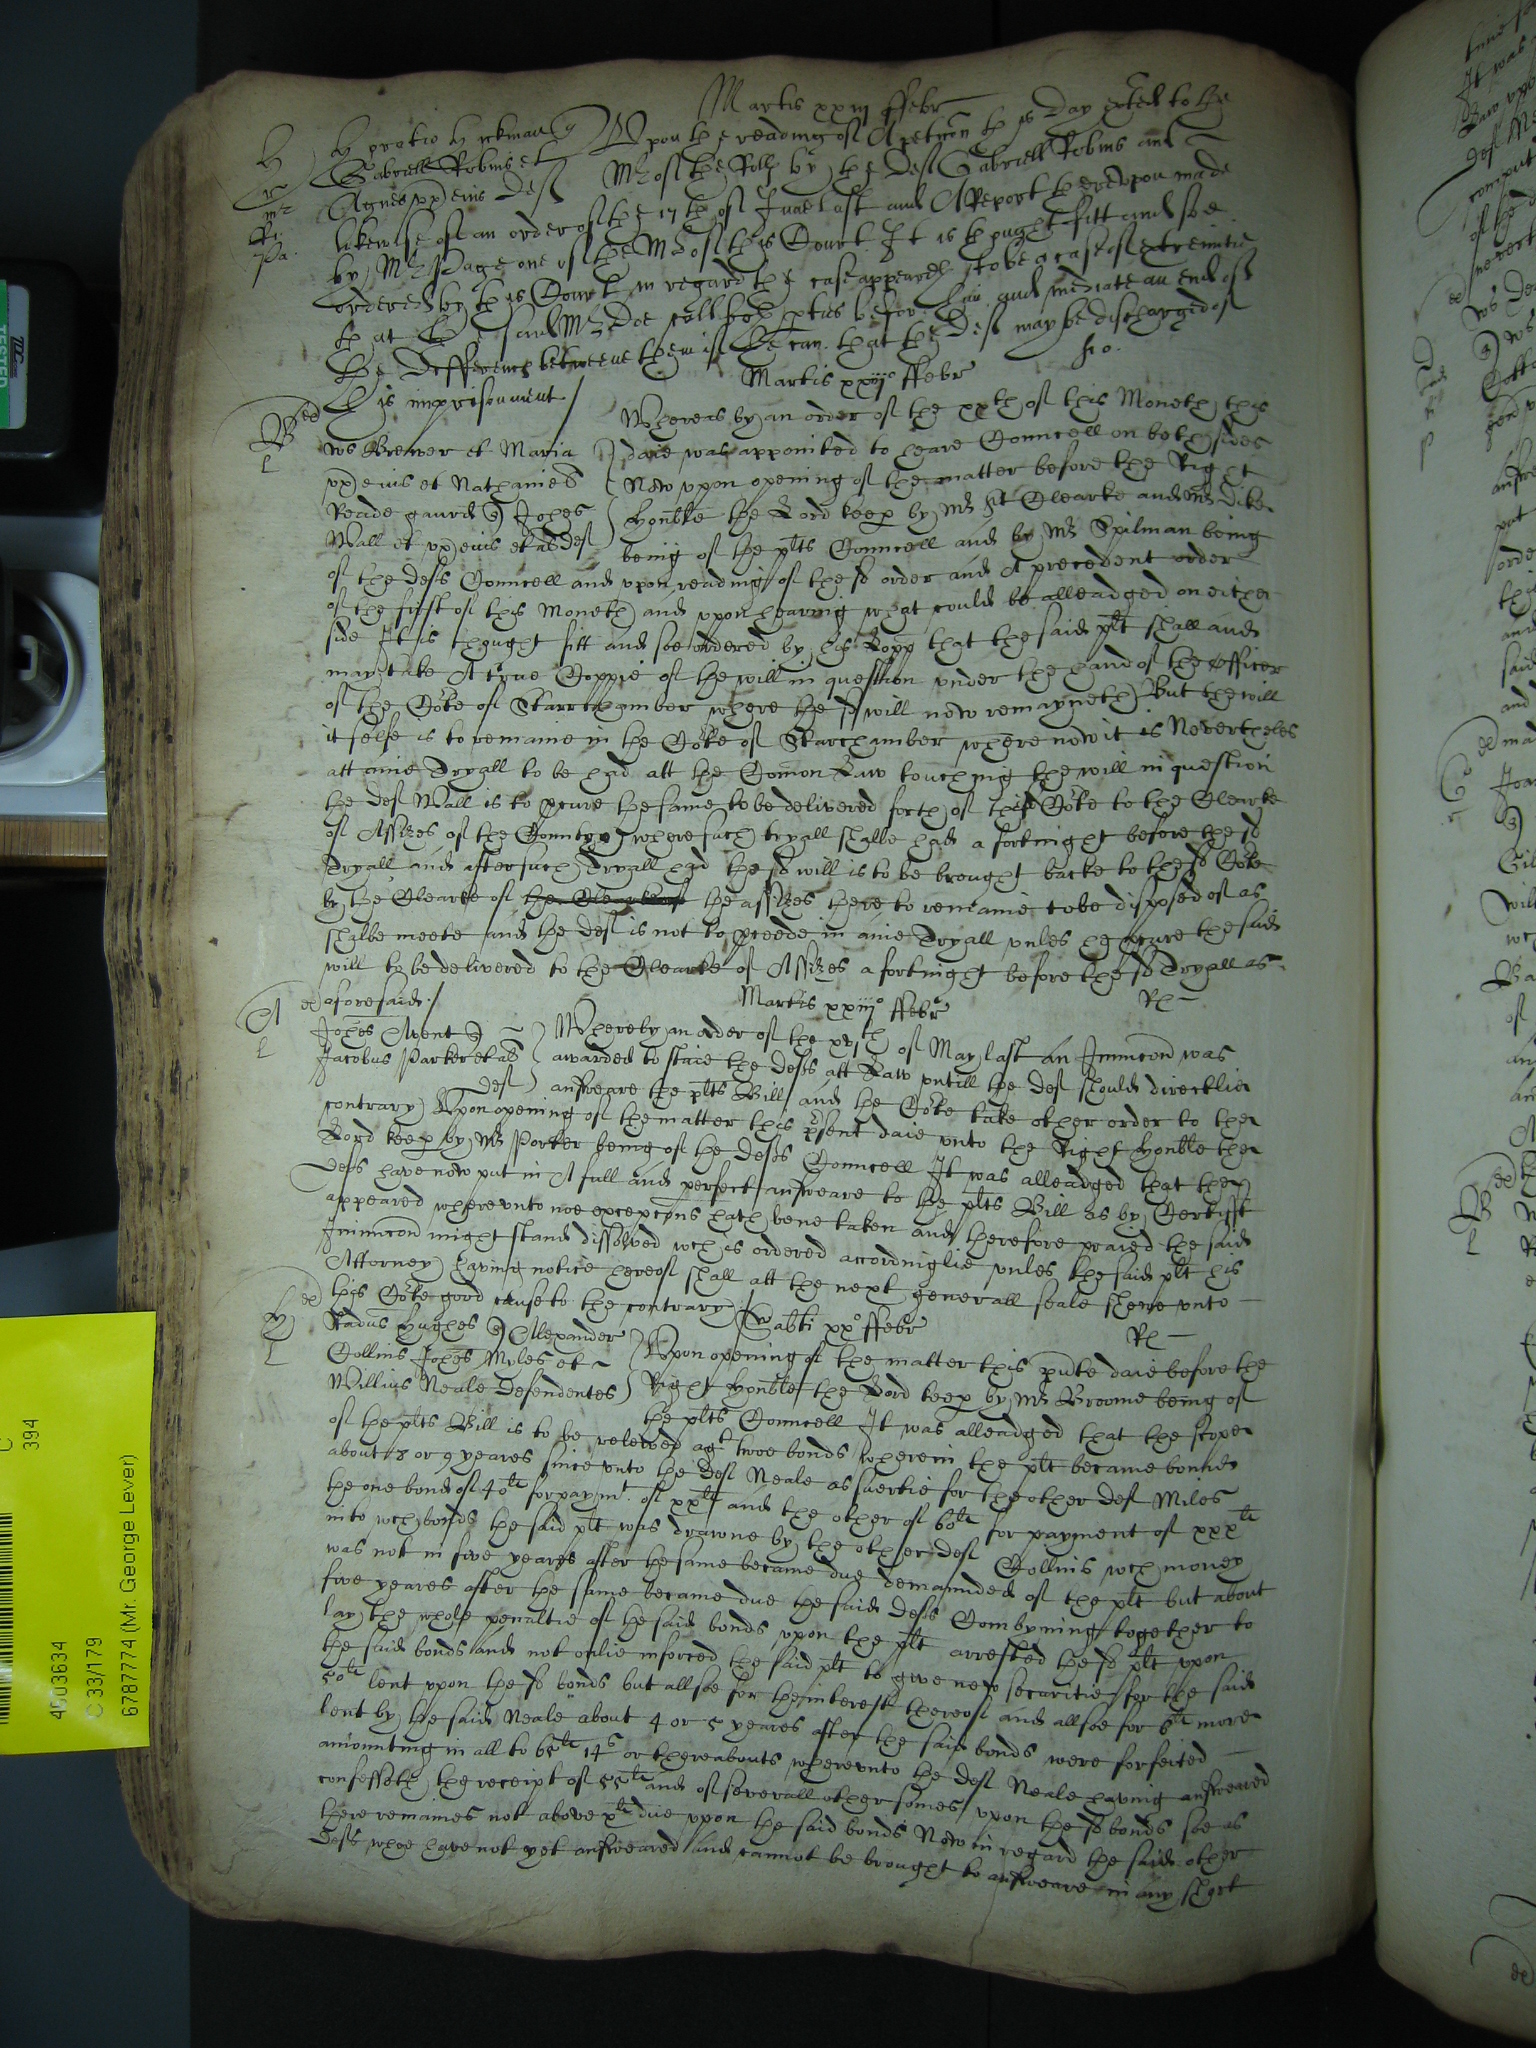 Martis xxiij ffebr
H Horatio Hickman q Upon the reading of A peticon this Day exted to the
Gabriell Robins et Mr of the Rolls by the Deft Gabriell Robins and
Agnes ux eius Deft likewise of an order of the 17th of June last and A Report thereupon made
by Mr Page one of the Mrs of this Court It is thought fitt and soe
ordered by this Court in regard the case appeareth to be a case of extremitie
that the said Mr doe call both pties before him and mediate an end of
the Difference betweene them if he can that the Deft may be discharged of
his imprisonment /
Martis xxiij° ffebr
B
L
Ws Brewer et Maria Whereas by an order of the xxth of this Moneth this
ux eius et Nathaniel daie was appointed to heare Councell on both sides
Reade quer Johes Now upon opening of the matter before the Right
Wall et ux eius et al Deft Honble the Lord keep by Mr St Clearke and Mr Dike
being of the plts Councell and by Mr Spilman being
of the defts Councell and upon reading of the sd order and A precedent order
of the first of this Moneth and upon hearing what could be alleadged on either
side It is thought fitt and soe ordered by his Lopp that the said plt shall and
may take A true Coppie of the will in question under the hand of the officer
of the Cote of Starrchamber where the sd will now remayneth But the will
it selfe is to remaine in the Cote of Starchamber where now it is Nevertheles
att anie Tryall to be had att the Comon Law touching the will in question
the deft Wall is to pcure the same to be delivered forth of this Cote to the Clearke
of Assizes of the County where such tryall shalbe had a fortnight before the sd
Tryall and after such Tryall had the sd will is to be brought backe to the sd Cote
by the Clearke of the Clearke of the assizes there to remaine to be disposed of as
shalbe meete and the deft is not to pceede in anie Tryall unles he pcure the said
will to be delivered to the Clearke of Assizes a fortnight before the sd Tryall as
aforesaid /
Martis xxiij° ffebr
A
L
Johes Avent q Where by an order of the xvjth of May last an Iniuncon was
Jacobus Parker et al awarded to staie the defts att Law untill the deft should directlie
Deft answeare the plts Bill and the Cote take other order to the
contrary Upon opening of the matter this psent daie unto the Right Honble the
Lord keep by Mr Porter being of the defts Councell It was alleadged that the
defts have now put in A full and perfect answeare to the plts Bill as by Certifft
appeared whereunto noe excepcons hath bene taken and therefore praied the said
Iniuncon might stand dissolved wch is ordered accordinglie unles the said plt his
Attorney having notice hereof shall att the next generall seale shewe unto
this Cote good cause to the contrary /
Sabti xx° ffebr
H
L
Radus Hughes q Allexander
Collins Johes Myles et Upon opening of the matter this pnte daie before the
Willius Neale Defendentes Right Honble the Lord keep by Mr Broome being of
the plts Councell It was alleadged that the scope
of the plts Bill is to be releived agt twoe bonds wherein the plt became bound
about 8 or 9 yeares since unto the deft Neale as suertie for the other deft Miles
the one bond of 40li for paymt of xxli and the other of 60li for payment of xxxli
into wch bonds the said plt was drawne by the other deft Collins wch money
was not in five yeares after the same became due demaunded of the plt but about
five yeares after the same became due the said defts Combyning together to
lay the whole penaltie of the said bonds upon the plt arrested the sd plt upon
the said bonds and not onlie inforced the said plt to give new securitie for the said
50li lent upon the sd bonds but allsoe for the interest thereof and allsoe for 6li more
lent by the said Neale about 4 or 5 yeares after the said bonds were forfeited
amounting in all to 65li 14s or thereabouts whereunto the deft Neale having answeared
confesseth the receipt of 55li and of severall other somes upon the sd bonds soe as
there remaines not above xli due upon the said bonds Now in regard the said other
defts whoe have not yet answeared and cannot be brought to answeare in any short
C
394
4003634
C 33/179
6787774 (Mr. George Lever)
TESTED